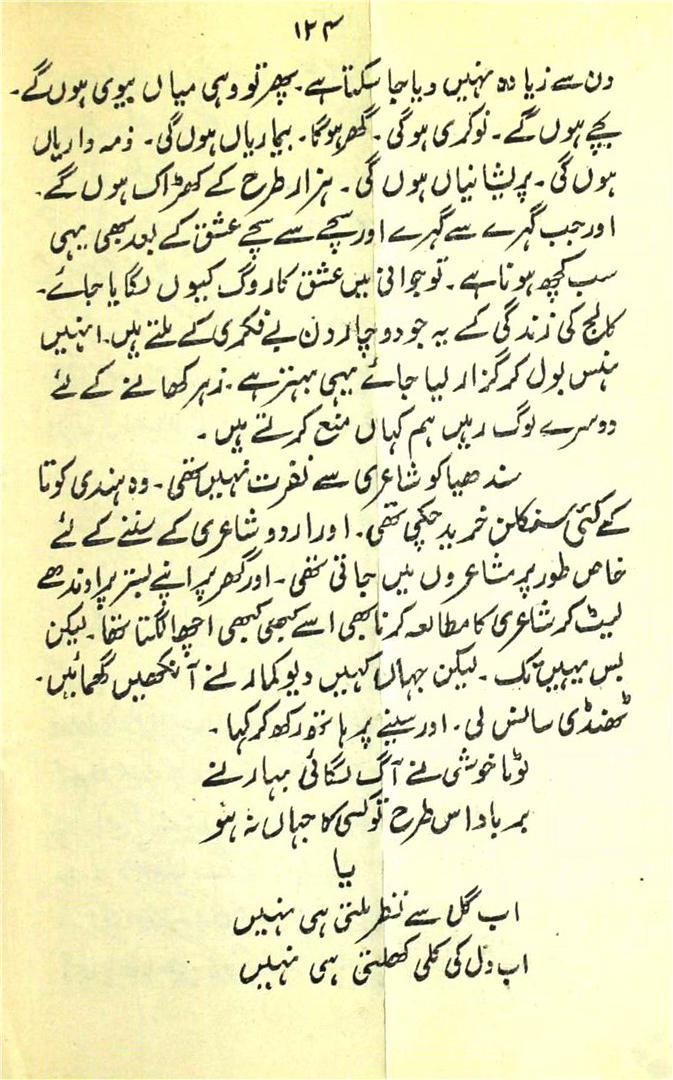 ۱۲۴
دن سے زیادہ نہیں دیا جا سکتا ہے۔ پھر تو وہی میاں بیوی ہوں گے۔
بچے ہوں گے۔ نوکری ہوگی۔ گھر ہوگا۔ بیماریاں ہوں گی۔ ذمہ داریاں
ہوں گی۔ پریشانیاں ہوں گی۔ ہزار طرح کے کھڑاک ہوں گے۔
اور جب گہرے سے گہرے اور سچے سے سچے عشق کے بعد بھی یہی
سب کچھ ہونا ہے۔ تو جوانی میں عشق کا روگ کیوں لگایا جائے۔
کالج کی زندگی کے یہ جو دو چار دن بے فکری کے ملتے ہیں۔ انہیں
ہنس بول کر گزار لیا جائے یہی بہتر ہے۔ زہر کھانے کے لئے
دوسرے لوگ رہیں ہم کہاں منع کرتے ہیں۔
سندھیا کو شاعری سے نفرت نہیں تھی۔ وہ ہندی کوتا
کے کئی سنکلن خرید چکی تھی۔ اور اردو شاعری کے سننے کے لئے
خاص طور پر مشاعروں میں جاتی تھی۔ اور گھر پر اپنے بستر پر اوندھے
لیٹ کر شاعری کا مطالعہ کرنا بھی اسے کبھی کبھی اچھا لگتا تھا۔ لیکن
بس یہیں تک۔ لیکن جہاں کہیں دیو کمار نے آنکھیں گھمائیں۔
ٹھنڈی سانس لی۔ اور سینے پر ہاتھ رکھ کر کہا۔
لوٹا خوشی نے آگ لگائی بہار نے
برباد اس طرح تو کسی کا جہاں نہ ہو
یا
اب گل سے نظر ملتی ہی نہیں
اب دل کی کلی کھلتی ہی نہیں